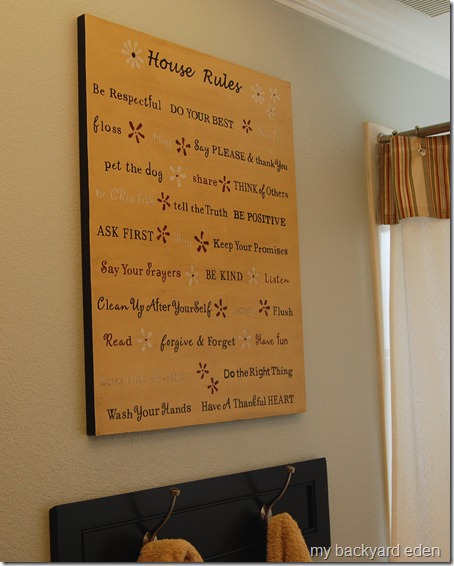 House Rules
Be Respectful DO YOUR BEST
floss Say PLEASE & thank You
pet the dog share THINK of Others
be CReaTive tell the Truth BE POSITIVE
ASK FIRST Keep Your Promises
Say Your Prayers BE KIND Listen
Clean Up After YourSelf Flush
Read forgive & Forget Have fun
Do the Right Thing
Wash Your Hands Have A Thankful HEART
my backyard eden